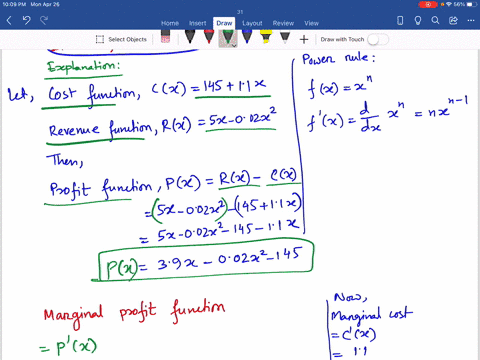 10:09 PM Mon Apr 26
56%
31
Home Insert Draw Layout Review View
Select Objects
Draw with Touch
Explanation:
Let, Cost function, C(x) = 145 + 1.1x
Revenue function, R(x) = 5x - 0.02x²
Then,
Profit function, P(x) = R(x) - C(x)
= (5x - 0.02x²) - (145 + 1.1x)
= 5x - 0.02x² - 145 - 1.1x
P(x) = 3.9x - 0.02x² - 145
Marginal profit function
= P'(x)
Power rule:
f(x) = xⁿ
f'(x) = d/dx xⁿ = nxⁿ⁻¹
Now,
Marginal cost
= C'(x)
= 1.1